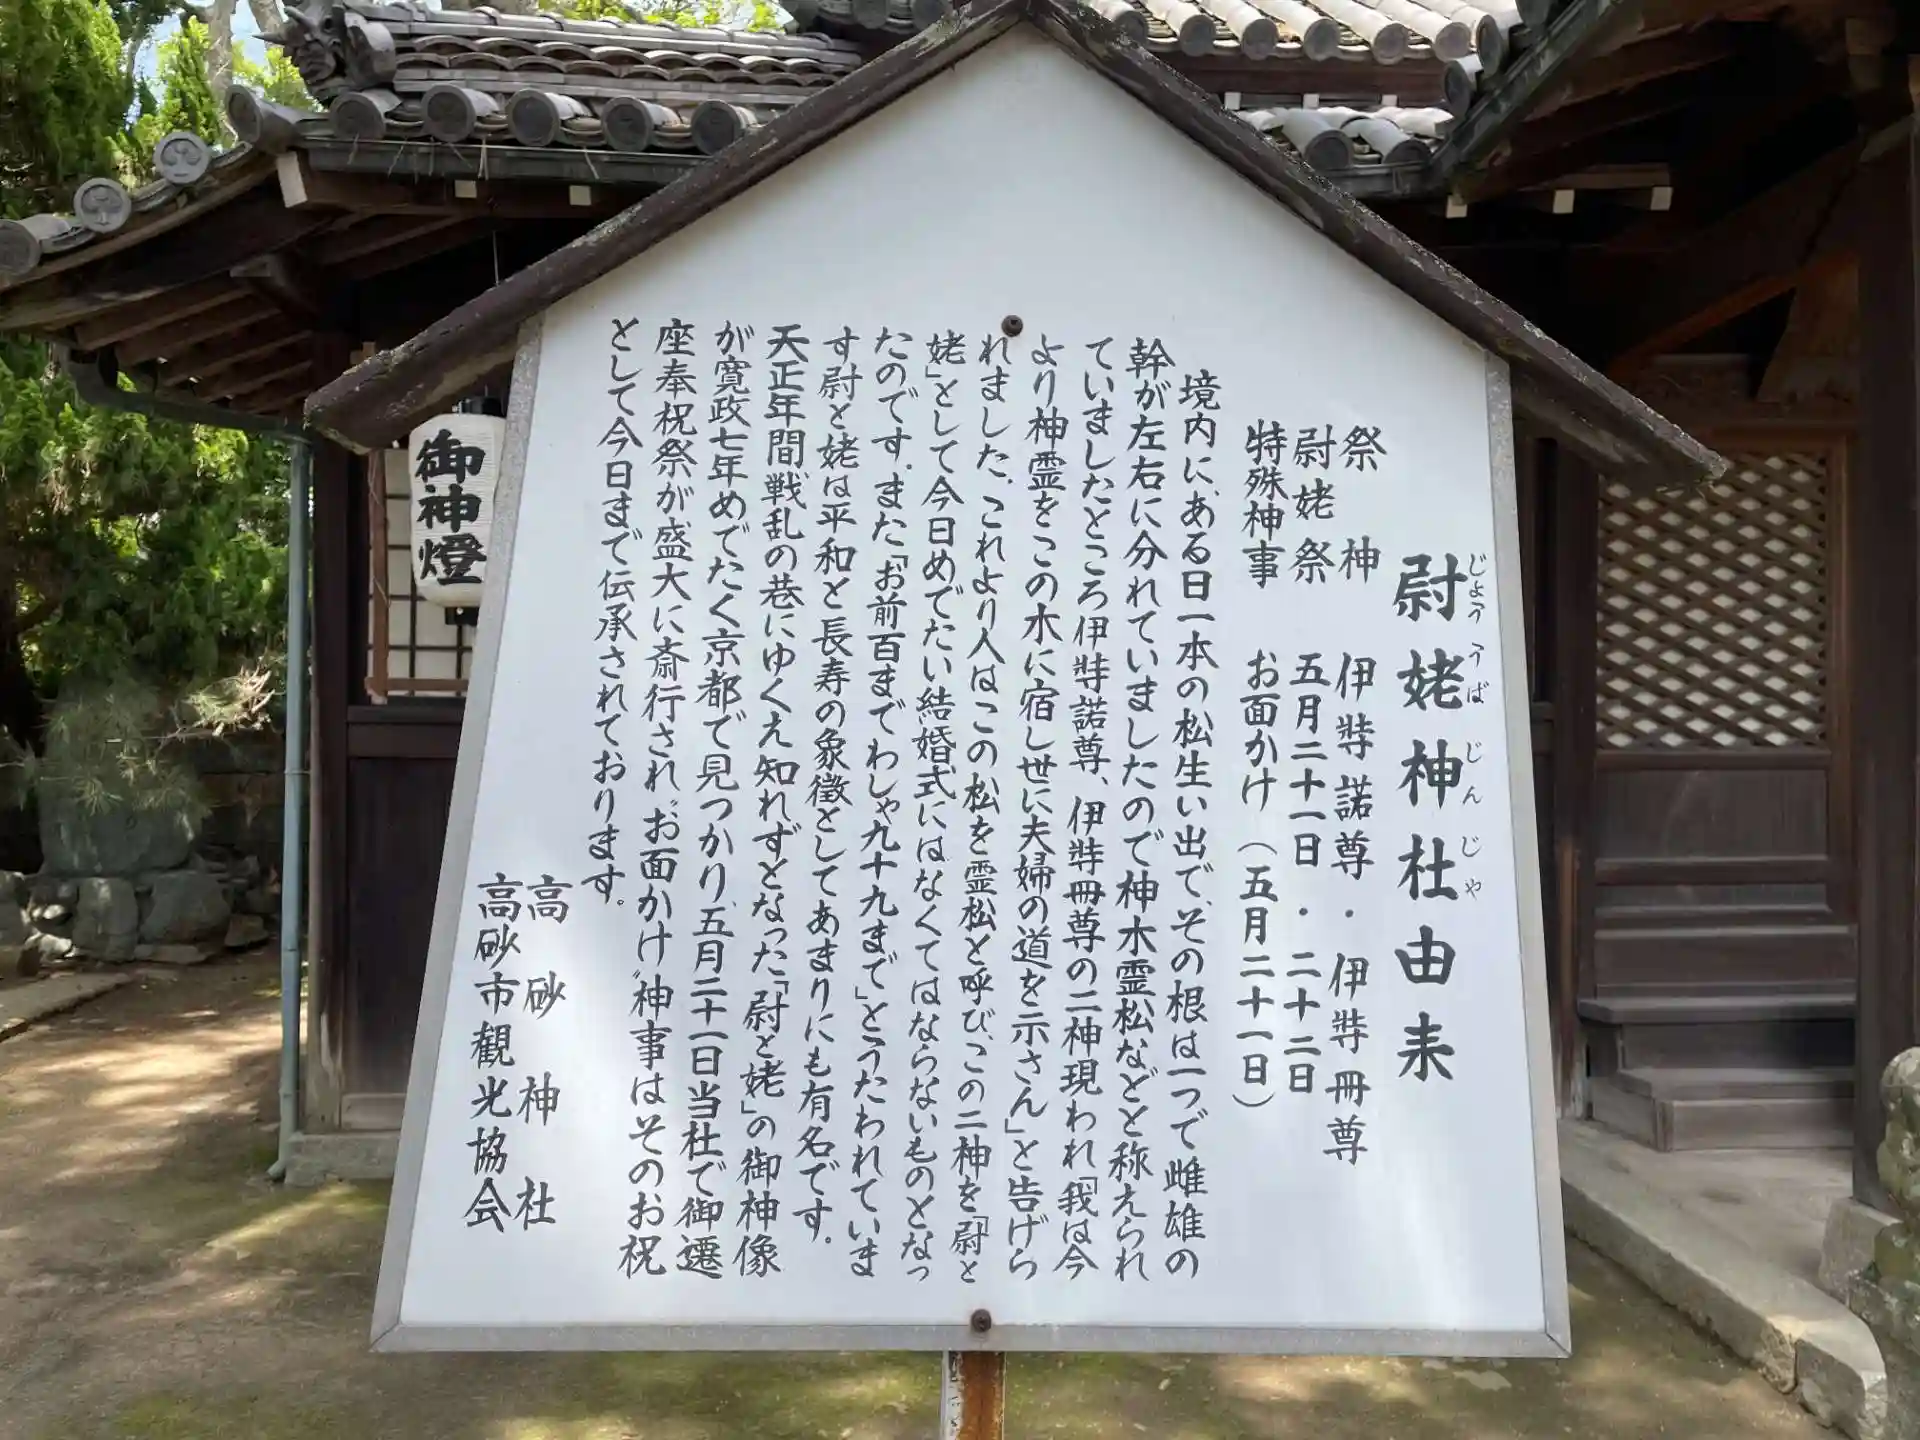 尉姥神社由来
じょう うば じん じゃ
祭神 伊弉諾尊・伊弉冊尊
尉姥祭 五月二十一日・二十二日
特殊神事 お面かけ(五月二十一日)
境内に、ある日一本の松生い出で、その根は一つで雌雄の
幹が左右に分れていましたので神木霊松などと称えられ
ていましたところ伊弉諾尊、伊弉冊尊の二神現われ「我は今
より神霊をこの木に宿し世に夫婦の道を示さん」と告げら
れました。これより人はこの松を霊松と呼び、この二神を「尉と
姥」として今日めでたい結婚式にはなくてはならないものとなっ
たのです。また「お前百までわしゃ九十九まで」とうたわれていま
す尉と姥は平和と長寿の象徴としてあまりにも有名です。
天正年間戦乱の巷にゆくえ知れずとなった「尉と姥」の御神像
が寛政七年めでたく京都で見つかり、五月二十一日当社で御遷
座奉祝祭が盛大に斎行され〝お面かけ〟神事はそのお祝
として今日まで伝承されております。
高砂神社
高砂市観光協会
御神燈